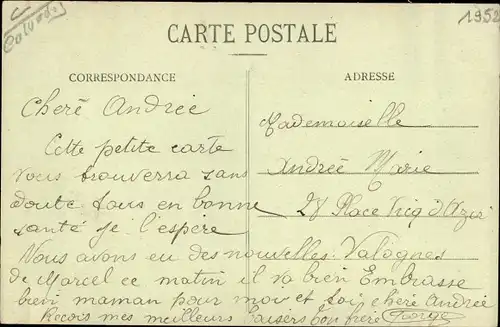 Calvados
1952
CARTE POSTALE
CORRESPONDANCE
ADRESSE
Cheré Andrée
Cette petite carte
vous trouverra sans
doute tous en bonne
santé je l'espère
Nous avons eu des nouvelles
de Marcel ce matin il va bien Embrasse
bien maman pour moi et toi cheré Andrée
Recois mes meilleurs baisers ton frère George
Mademoiselle
Andreé Marie
28 Place Vicq d'Azir
Valognes